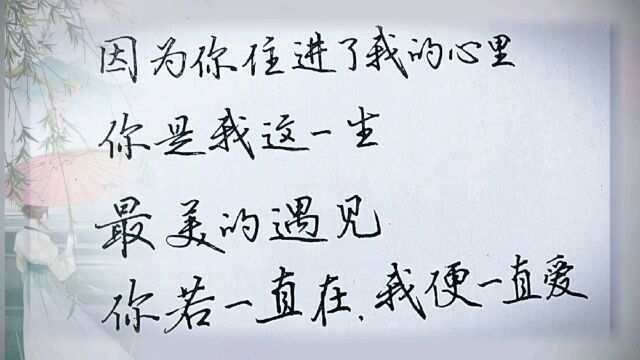 因为你住进了我的心里
你是我这一生
最美的遇见
你若一直在,我便一直爱